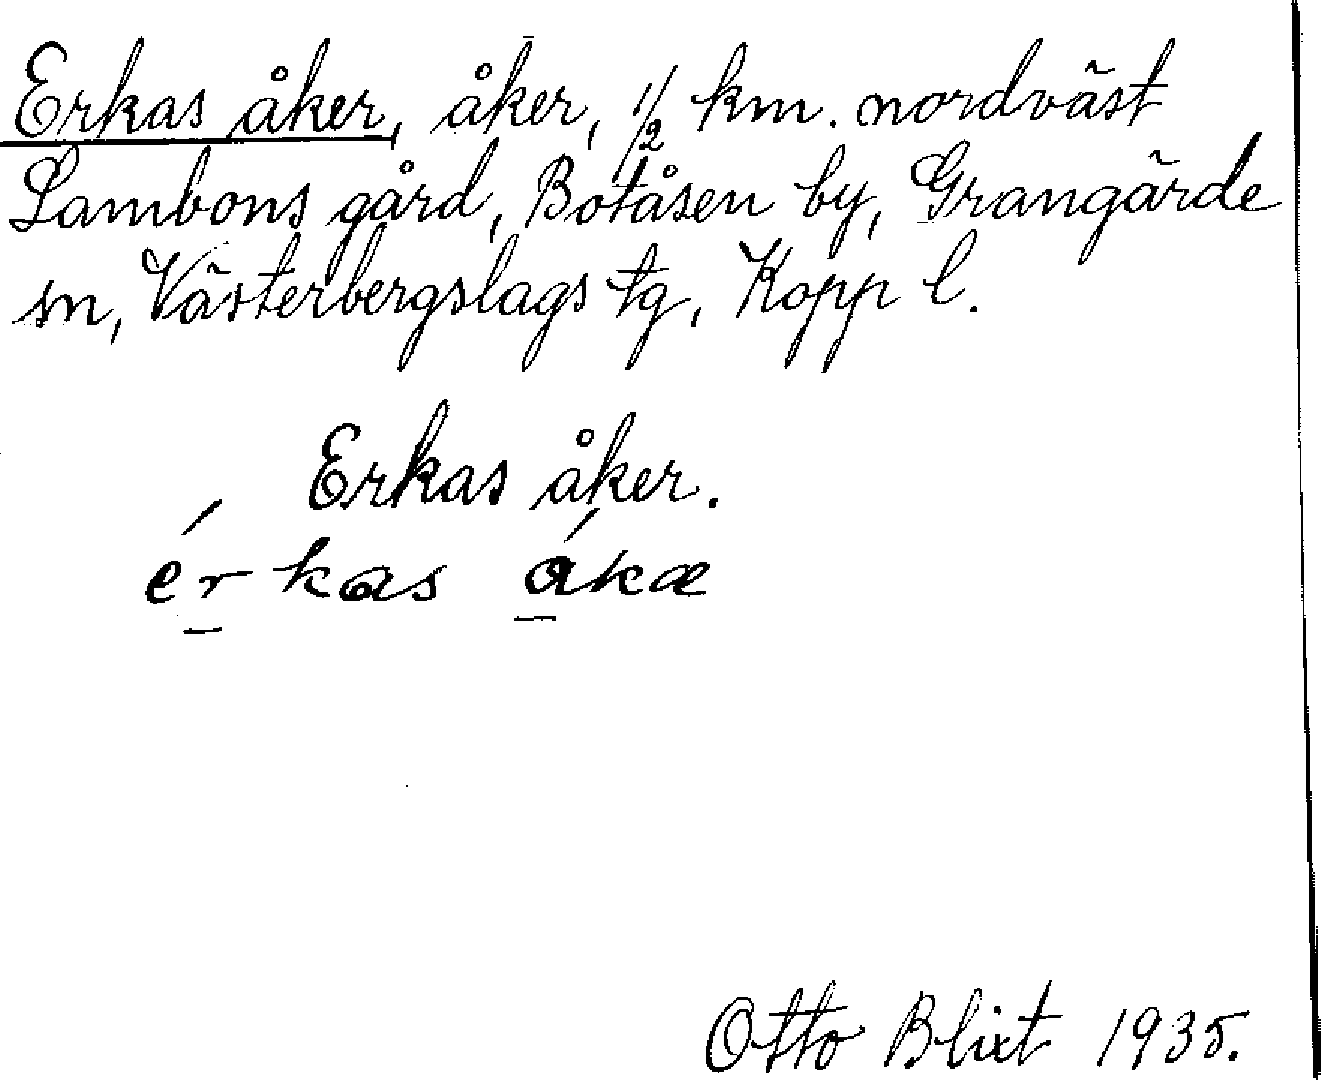 Erkas åker, åker, 1/2 km. nordväst
Lambons gård, Botåsen by, Grangärde
sn, Västerbergslags tg, Kopp l.
Erkas åker.
érkas ákæ
Otto Blixt 1935.